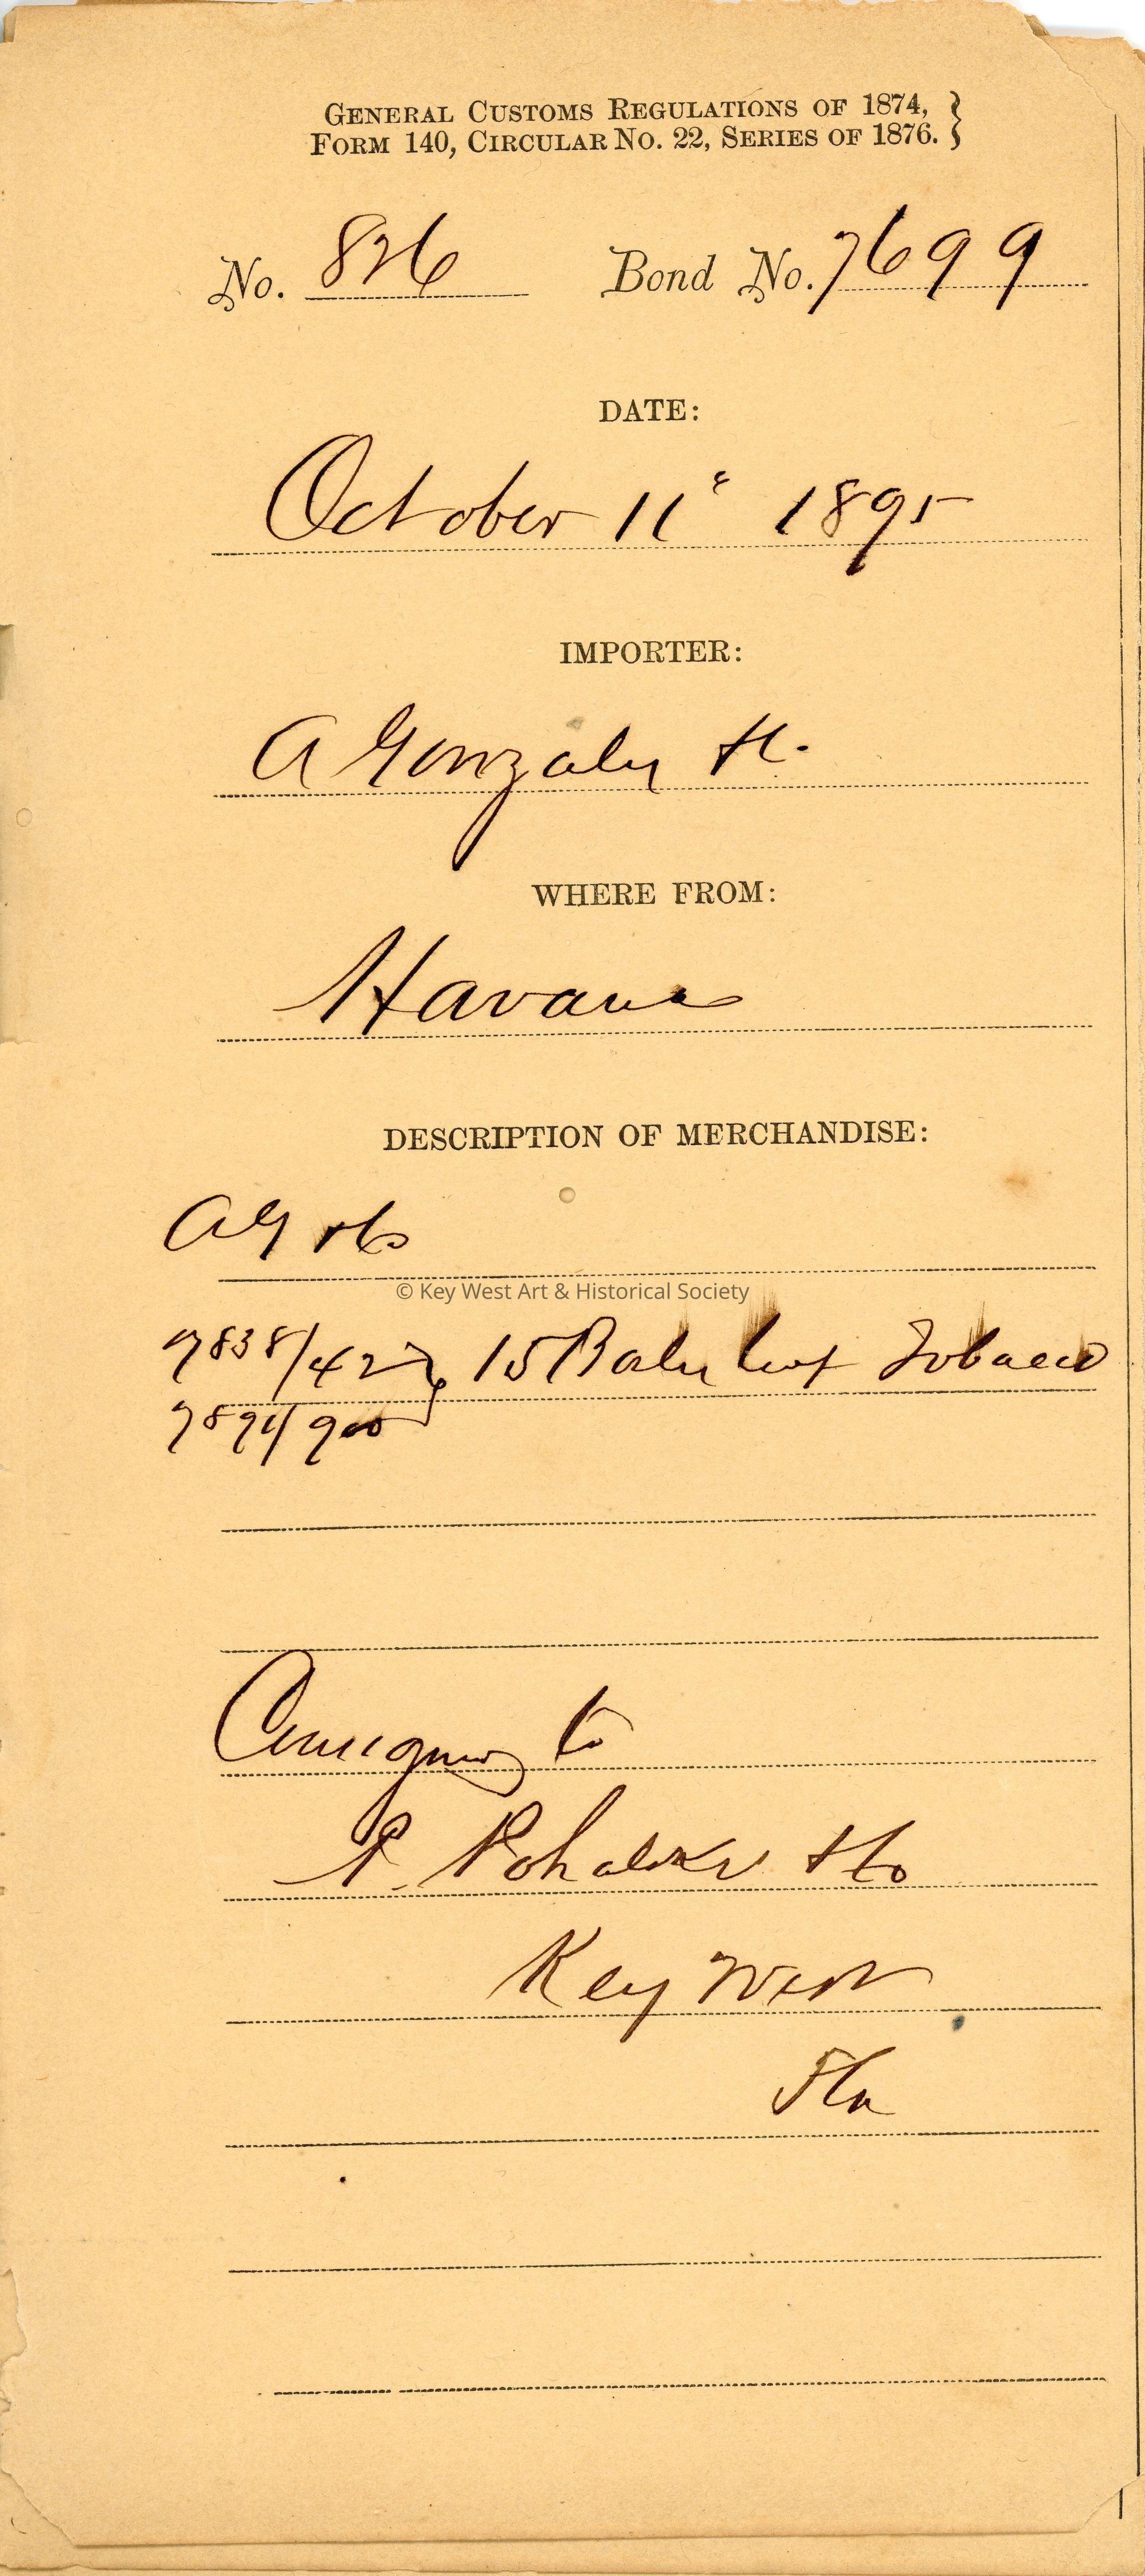 GENERAL CUSTOMS REGULATIONS OF 1874,
FORM 140, CIRCULAR NO. 22, SERIES OF 1876. }
No. 826 Bond No. 7699
DATE:
October 11 1895
IMPORTER:
A Gonzalez
WHERE FROM:
Havana
DESCRIPTION OF MERCHANDISE:
AG
© Key West Art & Historical Society
7838/42 } 15 Bales Leaf Tobacco
7891/900
Consigned to
P. Pohalski & Co
Key West
Fla